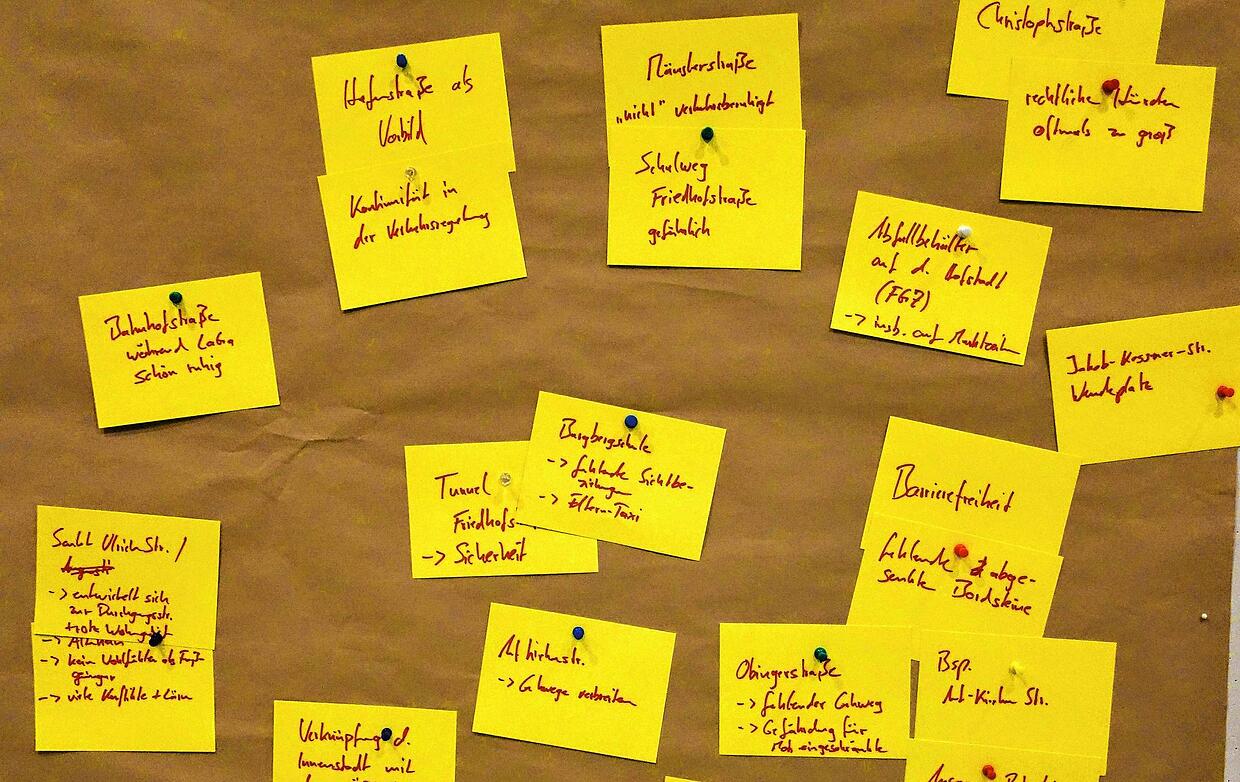 Christophstraße
rechtliche Hürden
oftmals zu groß
Münsterstraße
"nicht" verkehrsberuhigt
Schulweg
Friedhofstraße
gefährlich
Hafenstraße als
Vorbild
Kontinuität in
der Verkehrsregelung
Abfallbehälter
auf d. Hofstadt
(FGZ)
-> insb. auf
Bahnhofstraße
während LaGa
schön ruhig
Jakob- -Str.
Wendeplatz
Burgbergschule
-> fehlende Sichtbe-
ziehungen
-> Eltern-Taxi
Tunnel
Friedhofs-
-> Sicherheit
Barrierefreiheit
fehlende abge-
senkte Bordsteine
Sankt Ulrich Str. /
-> entwickelt sich
zur Durchgangsstr.
trotz
-> kein Wohlfühlen als Fuß-
gänger
-> viele Konflikte + Lärm
-> Gehwege verbreitern
Obingerstraße
-> fehlender Gehweg
-> Gefährdung für
Mob eingeschränkte
Bsp.
Str.
Verknüpfung d.
Innenstadt mit